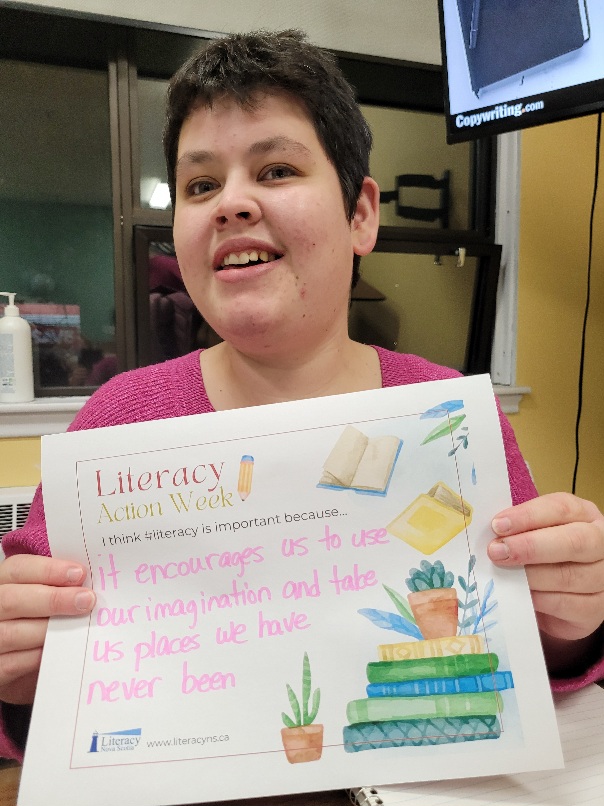 Copywriting.com
Literacy
Action Week
I think #literacy is important because...
it encourages us to use
our imagination and take
us places we have
never been
Literacy
Nova Scotia
www.literacyns.ca